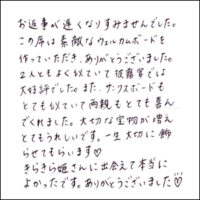 お返事が遅くなりすみませんでした。
この度は素敵なウェルカムボードを
作っていただき、ありがとうございました。
2人ともよく似ていて披露宴では
大好評でした。また、サンクスボードも
とても似ていて両親もとても喜ん
でくれました。大切な宝物が増え
とてもうれしいです。一生大切に飾
らせてもらいます♡
きらきら姫さんに出会えて本当に
よかったです。ありがとうございました